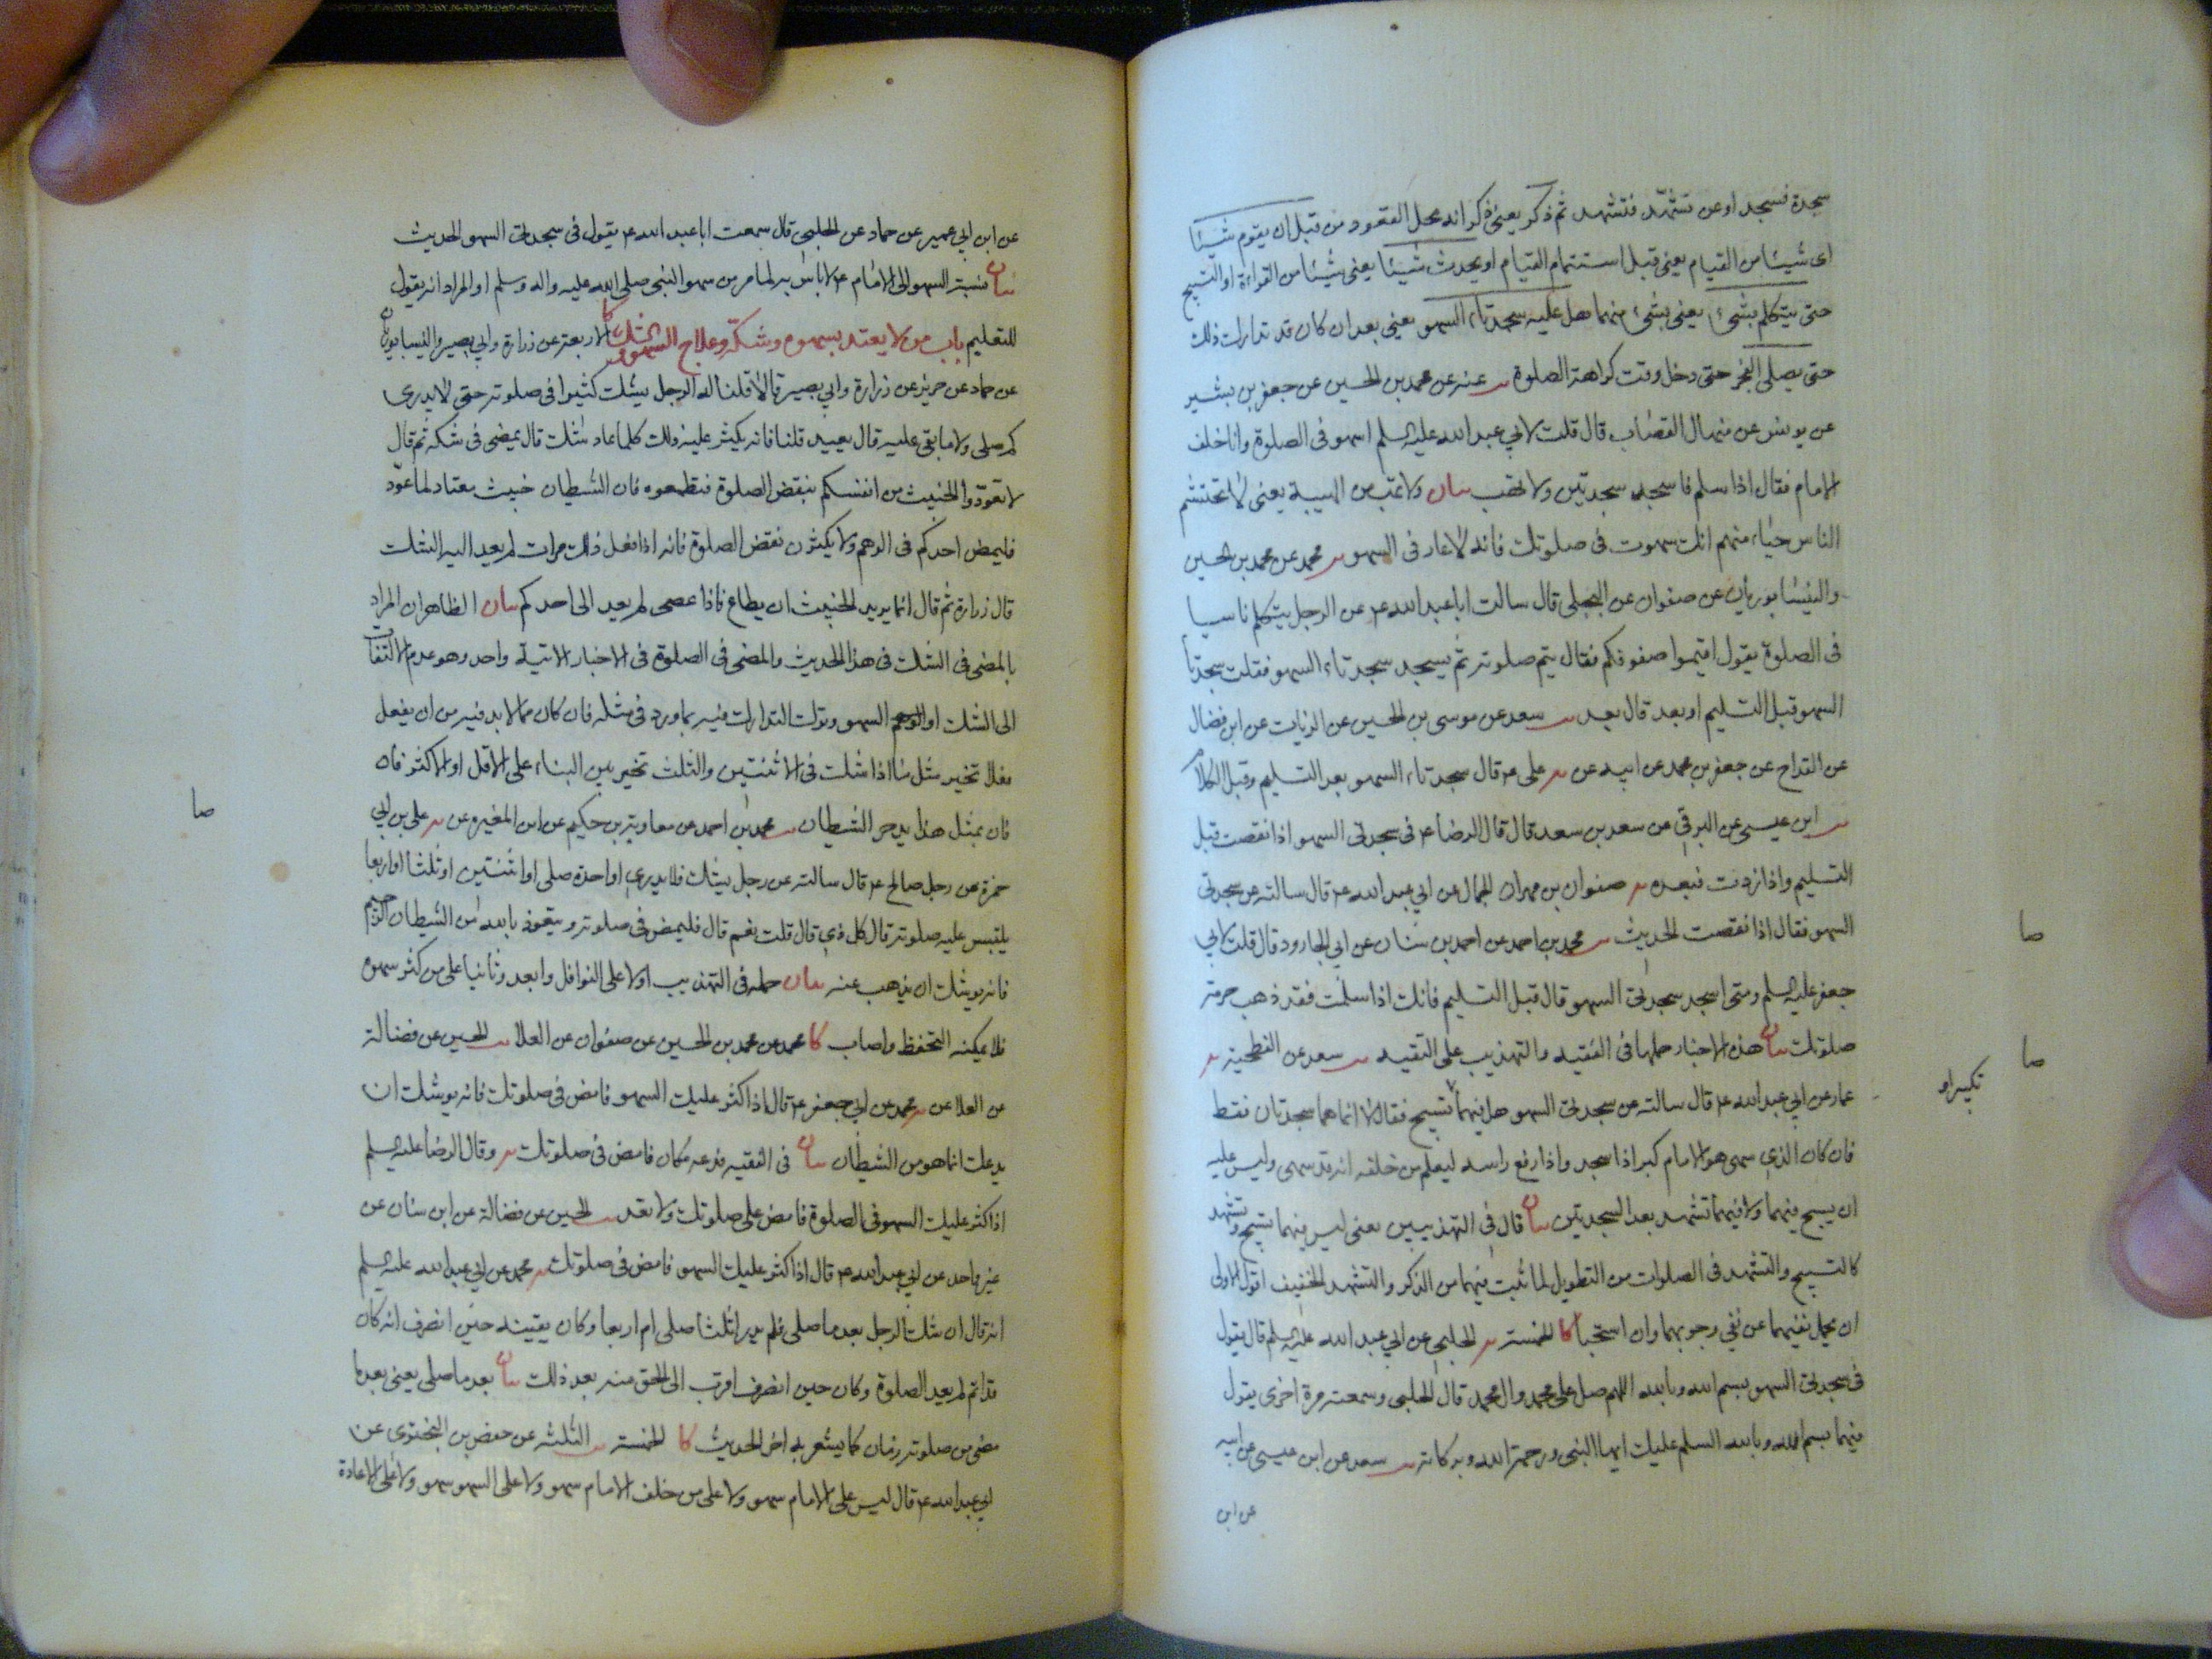 سجدة فسجد او عن تشهد فتشهد ثم ذكر يعنى ذكر انه محل القعود من قبل ان يقوم شيئا
اى شيئا من القيام يعنى قبل استتمام القيام او يحدث شيئا يعنى شيئا من القراءة او التسبيح
حتى يتكلم بشىء يعنى بشىء منهما هل عليه سجدتا السهو يعنى بعد ان كان قد تدارك ذلك
حتى يصلى الفجر حتى دخل وقت كراهة الصلوة يب عنه عن محمد بن الحسين عن جعفر بن بشير
عن يونس عن منهال القصاب قال قلت لابي عبد الله عليه السلم اسهو فى الصلوة وانا خلف
الامام فقال اذا سلم فاسجد سجدتين ولا تهب بيان ولا تهب من الهيبة يعنى لا تحتشم
الناس حياء منهم انك سهوت فى صلوتك فانه لا عار فى السهو يب محمد عن محمد بن الحسين
والنيسابوريان عن صفوان عن البجلى قال سالت ابا عبد الله ع عن الرجل يتكلم ناسيا
فى الصلوة يقول اقيموا صفوفكم فقال يتم صلوته ثم يسجد سجدتا السهو فقلت سجدتا
السهو قبل التسليم او بعد قال بعد يب سعد عن موسى بن الحسن عن الزيات عن ابن فضال
عن القداح عن جعفر بن محمد عن ابيه عن يه على ع قال سجدتا السهو بعد التسليم وقبل الكلام
يب ابن عيسى عن البرقى عن سعد بن سعد قال قال الرضا ع فى سجدتى السهو اذا نقصت قبل
التسليم واذا زدت فبعده يه صفوان بن مهران الجمال عن ابي عبد الله ع قال سالته عن سجدتى
السهو فقال اذا نقصت الحديث يب محمد بن احمد عن احمد بن سنان عن ابي الجارود قال قلت لابي
صا
جعفر عليه السلم ومتى اسجد سجدتى السهو قال قبل التسليم فانك اذا سلمت فقد ذهب حرمة
صلوتك بيان هذه الاخبار حملها فى الفقيه والتهذيب على التقيه يب سعد عن الفطحية يه
صا
عمار عن ابي عبد الله ع قال سالته عن سجدتى السهو هل فيهما تسبيح فقال لا انما هما سجدتان فقط
تكبير او
فان كان الذى سهى هو الامام كبر اذا سجد واذا رفع راسه ليعلم من خلفه انه قد سهى وليس عليه
ان يسبح فيهما ولا فيهما تشهد بعد السجدتين بيان قال فى التهذيبين يعنى ليس فيهما تسبيح وتشهد
كالتسبيح والتشهد فى الصلوات من التطويل لما ثبت فيهما من الذكر والتشهد الخفيف اقول الاولى
ان يحمل نفيهما عن نفى وجوبهما وان استحبا كا الخمسة يه الحلبى عن ابي عبد الله عليه السلم قال يقول
فى سجدتى السهو بسم الله وبالله اللهم صل على محمد وال محمد قال الحلبى وسمعته مرة اخرى يقول
فيهما بسم الله وبالله السلم عليك ايها النبى ورحمة الله وبركاته يب سعد عن ابن عيسى عن ابيه
عن ابن
عن ابن ابي عمير عن حماد عن الحلبى قال سمعت ابا عبد الله ع يقول فى سجدتى السهو الحديث
بيان نسبة السهو الى الامام ع لا باس به لما مر من سهو النبى صلى الله عليه واله وسلم او المراد انه يقول
للتعليم باب من لا يعتد بسهوه وشكه وعلاج السهو والشك كا الاربعة عن زرارة وابي بصير والنيسابوريان
عن حماد عن حريز عن زرارة وابي بصير قالا قلنا له الرجل يشك كثيرا فى صلوته حتى لا يدرى
كم صلى ولا ما بقى عليه قال يعيد قلنا فانه يكثر عليه ذلك كلما عاد شك قال يمضى فى شكه ثم قال
لا تعودوا الخبيث من انفسكم بنقض الصلوة فتطمعوه فان الشيطان خبيث معتاد لما عود
فليمض احدكم فى الوهم ولا يكثرن نقض الصلوة فانه اذا فعل ذلك مرات لم يعد اليه الشك
قال زرارة ثم قال انما يريد الخبيث ان يطاع فاذا عصى لم يعد الى احدكم بيان الظاهر ان المراد
بالمضى فى الشك فى هذا الحديث والمضى فى الصلوة فى الاخبار الاتية واحد وهو عدم الالتفات
الى الشك او السهو وترك التدارك فيه بما ورد فى مثله فان كان مما لا بد فيه من ان يفعل
فعلا تخير مثل ما اذا شك فى الاثنتين والثلث تخير بين البناء على الاقل او الاكثر فان
فان بمثل هذا يدحر الشيطان يب محمد بن احمد عن معاوية بن حكيم عن ابن المغيره عن يه على بن ابي
صا
حمزة عن رجل صالح ع قال سالته عن رجل يشك فلا يدرى اواحدة صلى او اثنتين او ثلثا او اربعا
يلتبس عليه صلوته قال كل ذى قال قلت نعم قال فليمض فى صلوته ويتعوذ بالله من الشيطان الرجيم
فانه يوشك ان يذهب عنه بيان حمله فى التهذيب اولا على النوافل وابعد وثانيا على من كثر سهوه
فلا يمكنه التحفظ واصاب كا محمد عن محمد بن الحسين عن صفوان عن العلا يب الحسين عن فضالة
عن العلا عن يه محمد عن ابي جعفر ع قال اذا كثر عليك السهو فامض فى صلوتك فانه يوشك ان
يدعك انما هو من الشيطان بيان فى الفقيه فدعه مكان فامض فى صلوتك يه وقال الرضا عليه السلم
اذا كثر عليك السهو فى الصلوة فامض على صلوتك ولا تعد يب الحسين عن فضالة عن ابن سنان عن
غير واحد عن ابي عبد الله ع قال اذا كثر عليك السهو فامض فى صلوتك يه محمد عن ابي عبد الله عليه السلم
انه قال ان شك الرجل بعد ما صلى فلم يدر اثلثا صلى ام اربعا وكان يقينه حين انصرف انه كان
قد اتم لم يعد الصلوة وكان حين انصرف اقرب الى الحق منه بعد ذلك بيان بعد ما صلى يعنى بعد ما
مضى من صلوته زمان كما يشعر به اخر الحديث كا الخمسة يب الثلثه عن حفص بن البخترى عن
ابي عبد الله ع قال ليس على الامام سهو ولا على من خلف الامام سهو ولا على السهو سهو ولا على الاعادة